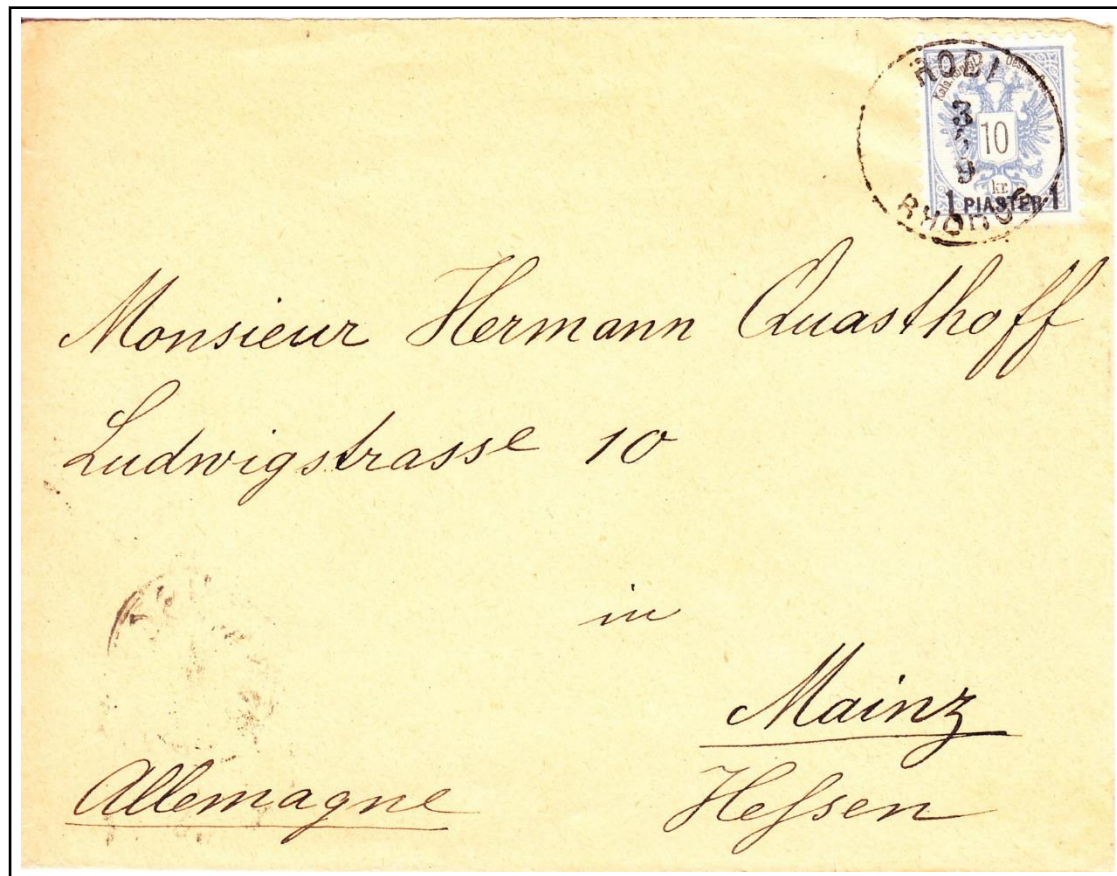 RODI
3
9
RHODUS
10
kr.
1 PIASTER 1
Monsieur Hermann Quasthoff
Ludwigstrasse 10
in
Mainz
Allemagne
Hessen